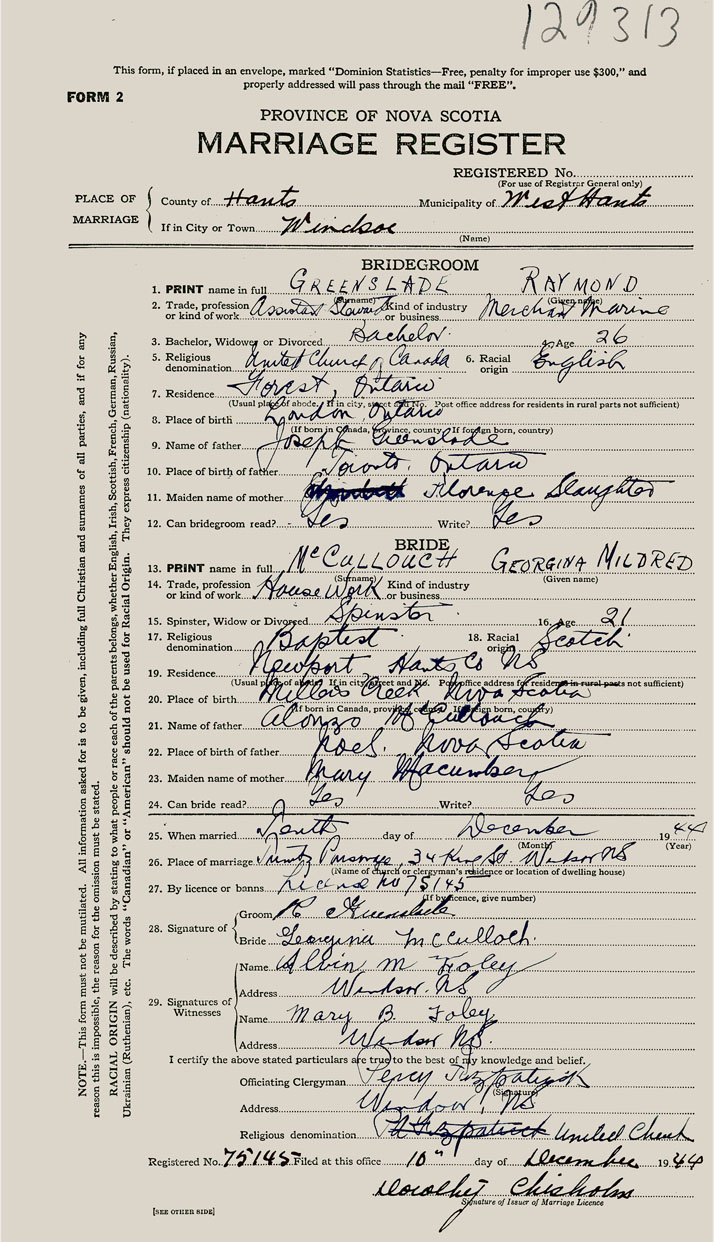 129313
This form, if placed in an envelope, marked "Dominion Statistics—Free, penalty for improper use $300," and
properly addressed will pass through the mail "FREE".
FORM 2
PROVINCE OF NOVA SCOTIA
MARRIAGE REGISTER
REGISTERED No.
(For use of Registrar General only)
PLACE OF MARRIAGE
County of Hants Municipality of West Hants
If in City or Town Windsor
(Name)
BRIDEGROOM
1. PRINT name in full GREENSLADE RAYMOND
(Surname) (Given name)
2. Trade, profession or kind of work Assistant Steward Kind of industry or business Merchant Marine
3. Bachelor, Widower or Divorced Bachelor. 4. Age 26
5. Religious denomination United Church of Canada 6. Racial origin English
7. Residence Forest, Ontario
(Usual place of abode. If in city, street and No. Post office address for residents in rural parts not sufficient)
8. Place of birth London Ontario
(If born in Canada, province, county. If foreign born, country)
9. Name of father Joseph Greenslade
10. Place of birth of father Toronto, Ontario
11. Maiden name of mother Florence Slaughter
12. Can bridegroom read? Yes Write? Yes
BRIDE
13. PRINT name in full McCULLOUCH GEORGINA MILDRED
(Surname) (Given name)
14. Trade, profession or kind of work House Work Kind of industry or business
15. Spinster, Widow or Divorced Spinster 16. Age 21
17. Religious denomination Baptist 18. Racial origin Scotch
19. Residence Newport Hants Co NS
(Usual place of abode? If in city, street and No. Post office address for residents in rural parts not sufficient)
20. Place of birth Millers Creek Nova Scotia
(If born in Canada, province, county. If foreign born, country)
21. Name of father Alonzo McCullouch
22. Place of birth of father Noel. Nova Scotia
23. Maiden name of mother Mary Macumber
24. Can bride read? Yes Write? Yes
25. When married Tenth day of December 1944
(Month) (Year)
26. Place of marriage Parsonage, 34 King St. Windsor NS
(Name of church or clergyman's residence or location of dwelling house)
27. By licence or banns License no 75145
(If by licence, give number)
28. Signature of
Groom R Greenslade
Bride Georgina McCulloch.
29. Signatures of Witnesses
Name Alvin M Foley
Address Windsor. NS
Name Mary B. Foley
Address Windsor NS.
I certify the above stated particulars are true to the best of my knowledge and belief.
Officiating Clergyman Percy Fitzpatrick
(Signature)
Address Windsor, NS
Religious denomination United Church
Registered No. 75145 Filed at this office 10" day of December 1944
Dorothy Chisholm
Signature of Issuer of Marriage Licence
[SEE OTHER SIDE]
NOTE.—This form must not be mutilated. All information asked for is to be given, including full Christian and surnames of all parties, and if for any
reason this is impossible, the reason for the omission must be stated.
RACIAL ORIGIN will be described by stating to what people or race each of the parents belongs, whether English, Irish, Scottish, French, German, Russian,
Ukrainian (Ruthenian), etc. The words "Canadian" or "American" should not be used for Racial Origin. They express citizenship (nationality).